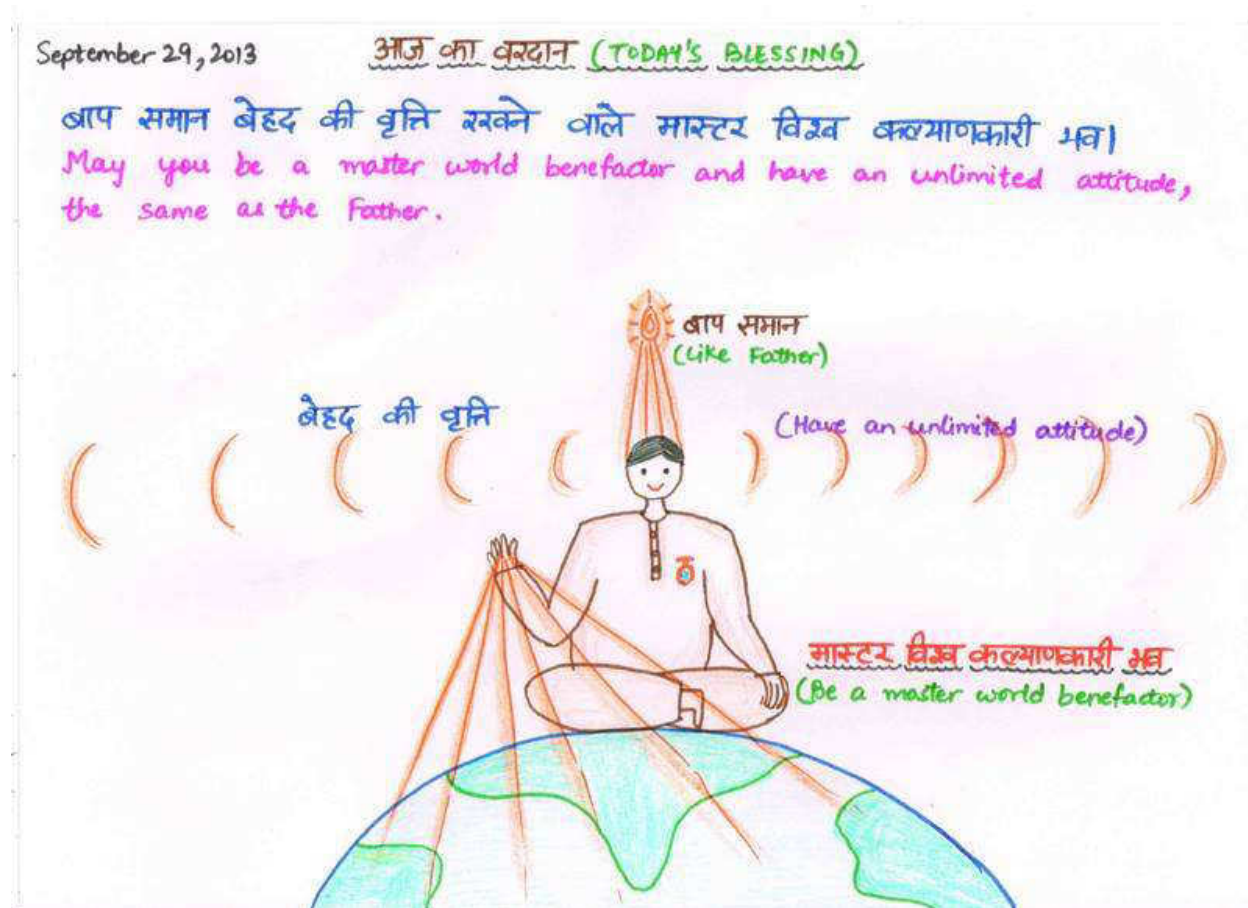 September 29, 2013
आज का वरदान (TODAY'S BLESSING)
बाप समान बेहद की वृत्ति रखने वाले मास्टर विश्व कल्याणकारी भव।
May you be a master world benefactor and have an unlimited attitude,
the same as the Father.
बाप समान
(Like Father)
बेहद की वृत्ति
(Have an unlimited attitude)
मास्टर विश्व कल्याणकारी भव
(Be a master world benefactor)